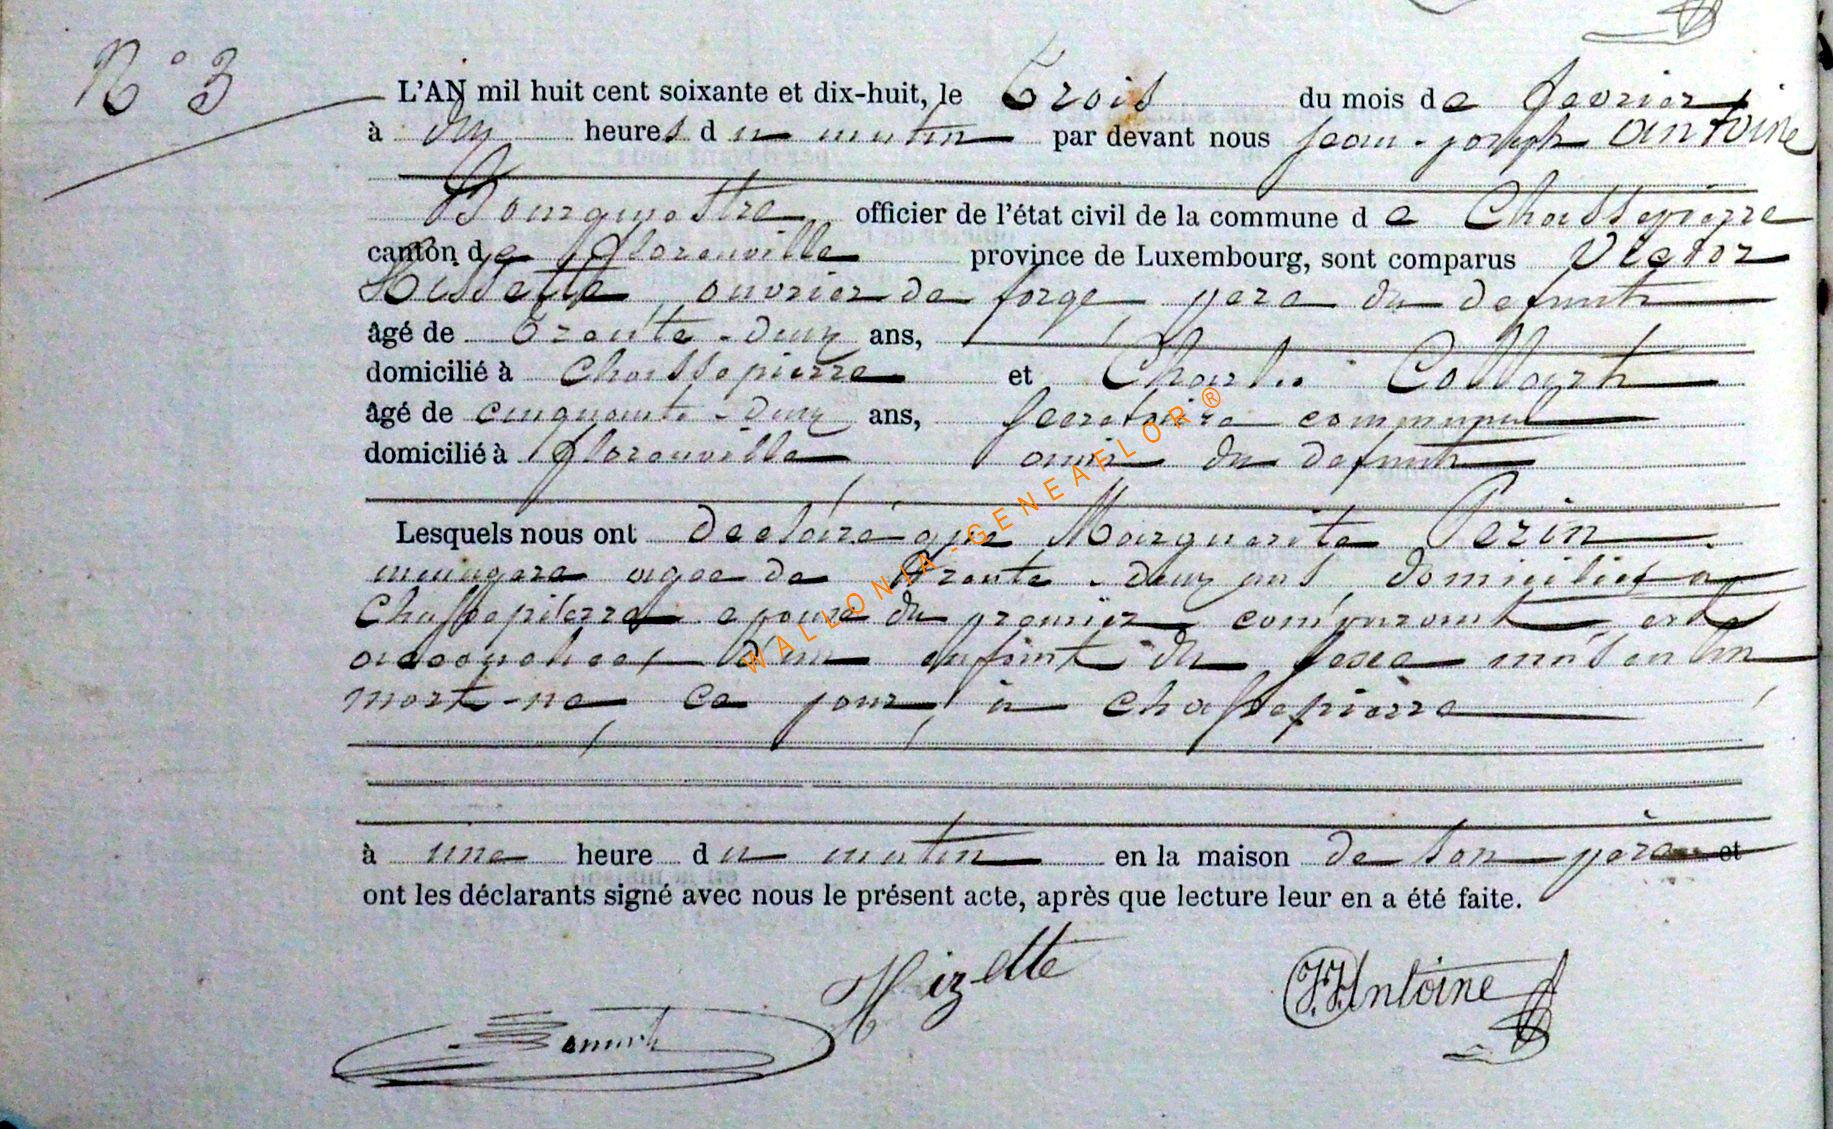 N° 3
L'AN mil huit cent soixante et dix-huit, le Trois du mois de fevrier
à dix heures du matin par devant nous Jean-joseph Antoine
Bourgmestre officier de l'état civil de la commune de Chassepierre
canton de florenville province de Luxembourg, sont comparus Victor
Hissette ouvrier de forge pere du defunt
âgé de Trente-deux ans,
domicilié à Chassepierre et Charles Collart
âgé de cinquante-deux ans, secretaire communal
domicilié à florenville ami du defunt
Lesquels nous ont declaré que Marguerite Perin
menagere agee de trente-deux ans domiciliee a
Chassepierre epouse du premier comparant est
accouchee d'un enfant du sexe masculin
mort-ne ce jour à chassepierre
à une heure du matin en la maison de son père et
ont les déclarants signé avec nous le présent acte, après que lecture leur en a été faite.
Hizette
J.J. Antoine
WALLONIA-GENEAFLOR®